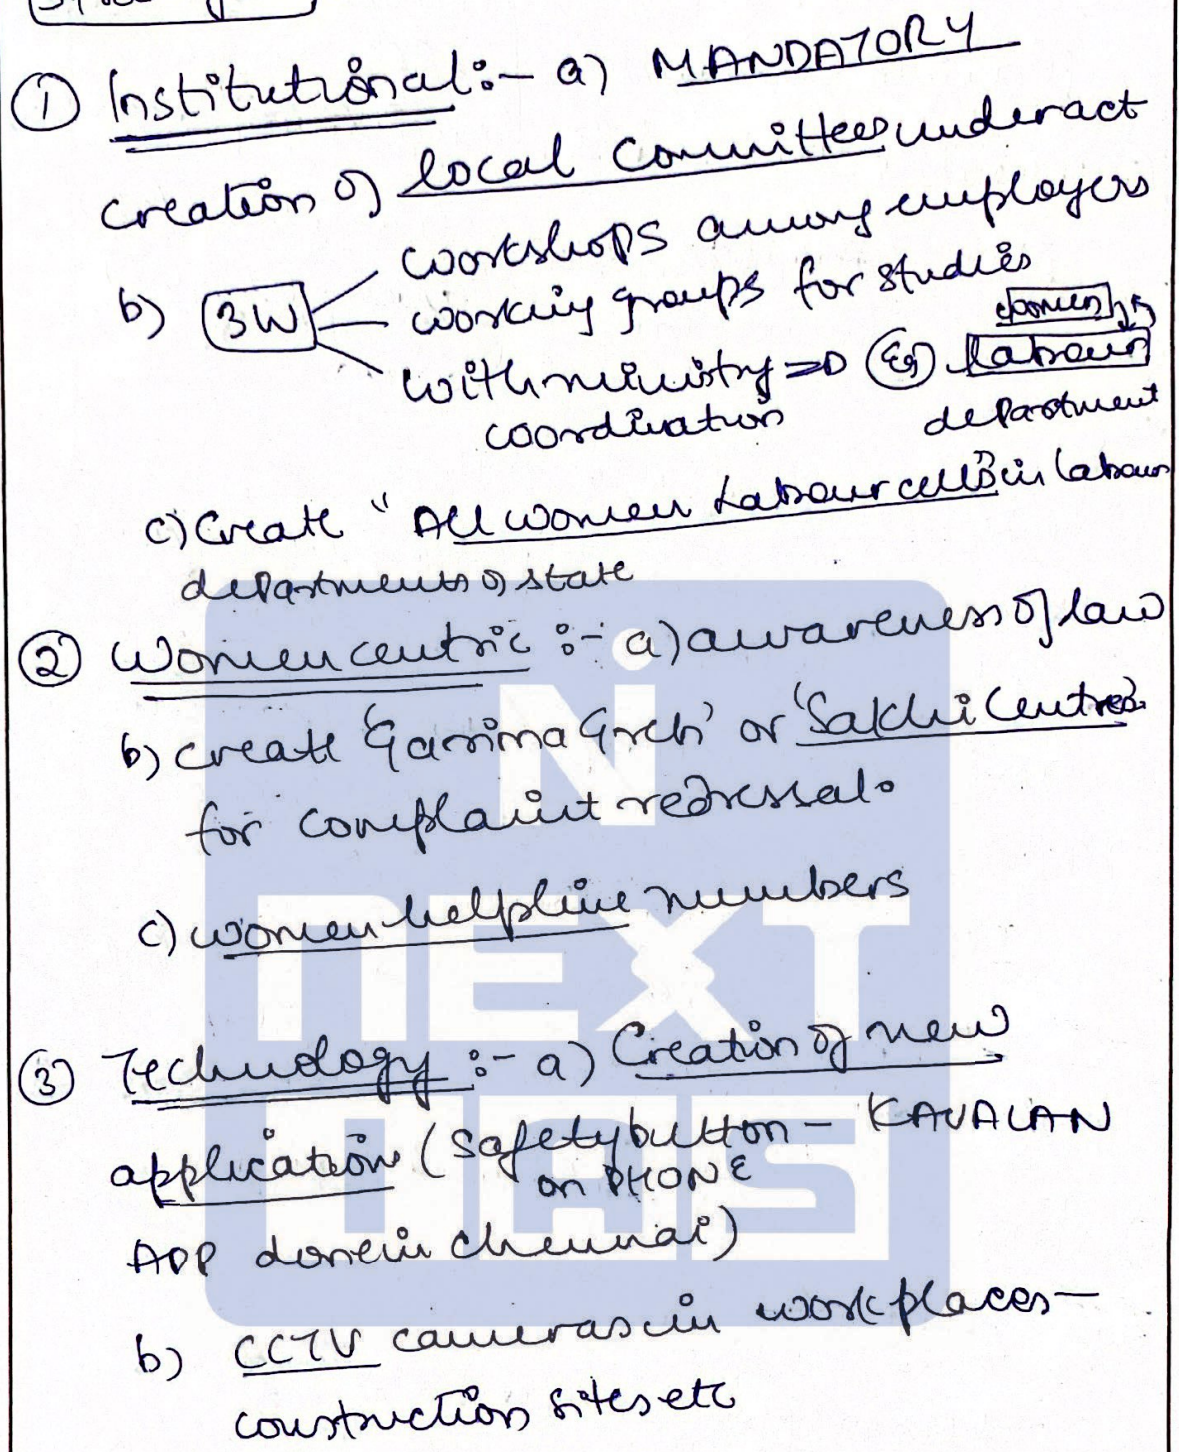 ① Institutional :- a) MANDATORY
creation of local committees under act
b) 3W workshops among employers
working groups for studies
with ministry => Eg women
labour
coordination department
c) Create "All women Labour cells" in labour
departments of state
② Women centric :- a) awareness of law
b) create 'Garima Greh' or 'Sakhi Centres'
for complaint redressal.
c) women helpline numbers
③ Technology :- a) Creation of new
application (safety button - KAVALAN
on PHONE
APP done in chennai)
b) CCTV cameras in workplaces -
construction sites etc
NEXT
IAS